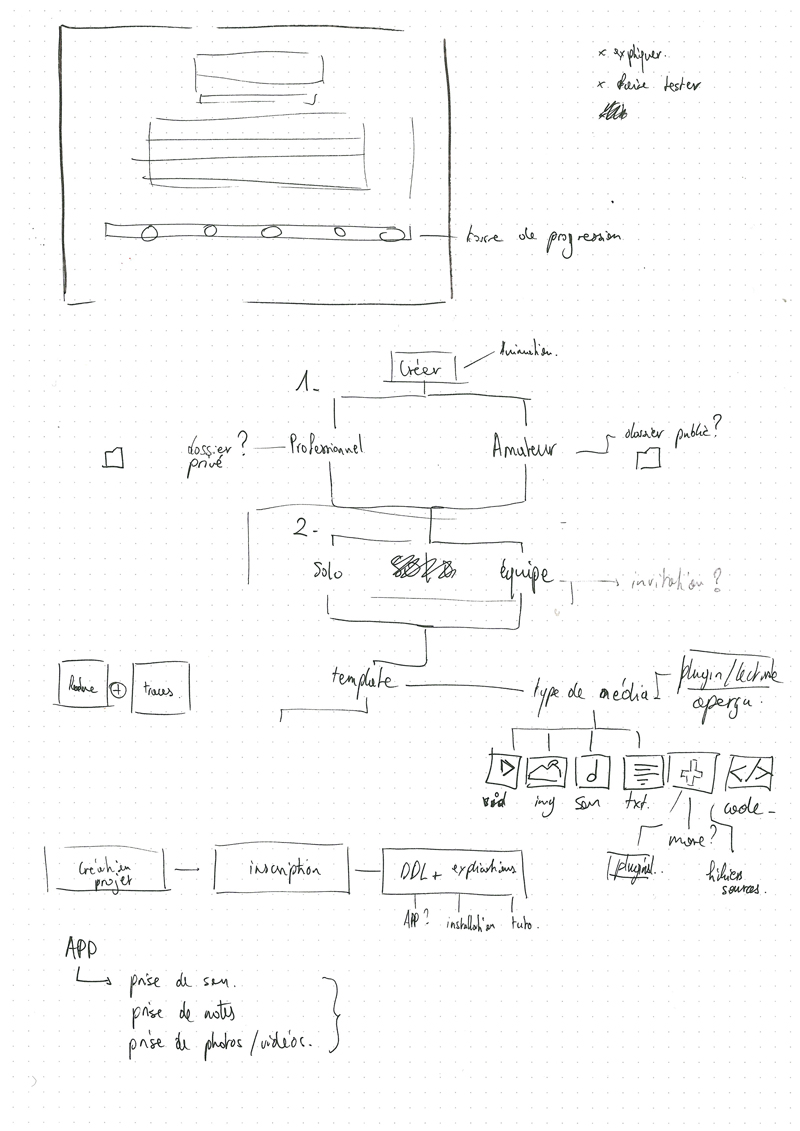 x expliquer.
x faire tester
barre de progression
Créer
Animation.
1-
dossier privé ?
Professionnel
Amateur
dossier public ?
2-
Solo
équipe
invitation ?
template
type de média
plugin/lecture
aperçu.
+
traces.
vid
img
son
txt.
</>
code -
more ?
plugins.
fichiers
sources.
Création
projet
inscription
DDL + explications
APP ?
installation
tuto.
APP
prise de son.
prise de notes
prise de photos / vidéos.